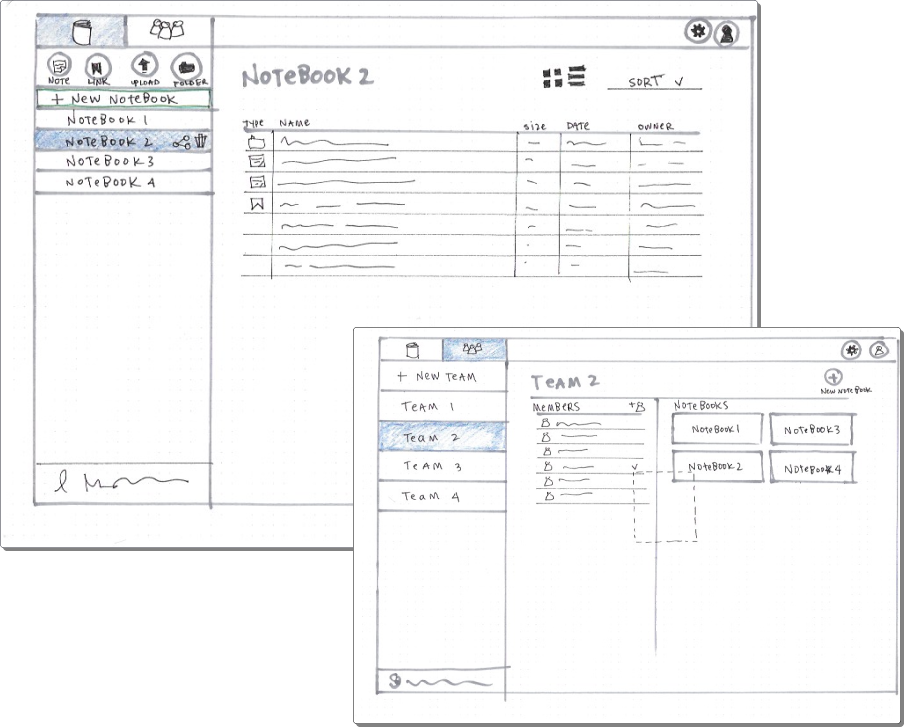 NOTE LINK UPLOAD FOLDER
+ NEW NOTEBOOK
NOTEBOOK 1
NOTEBOOK 2
NOTEBOOK 3
NOTEBOOK 4
NOTEBOOK 2
SORT
TYPE NAME SIZE DATE OWNER
+ NEW TEAM
TEAM 1
TEAM 2
TEAM 3
TEAM 4
TEAM 2
NEW NOTEBOOK
MEMBERS +
NOTEBOOKS
NOTEBOOK 1 NOTEBOOK 3
NOTEBOOK 2 NOTEBOOK 4